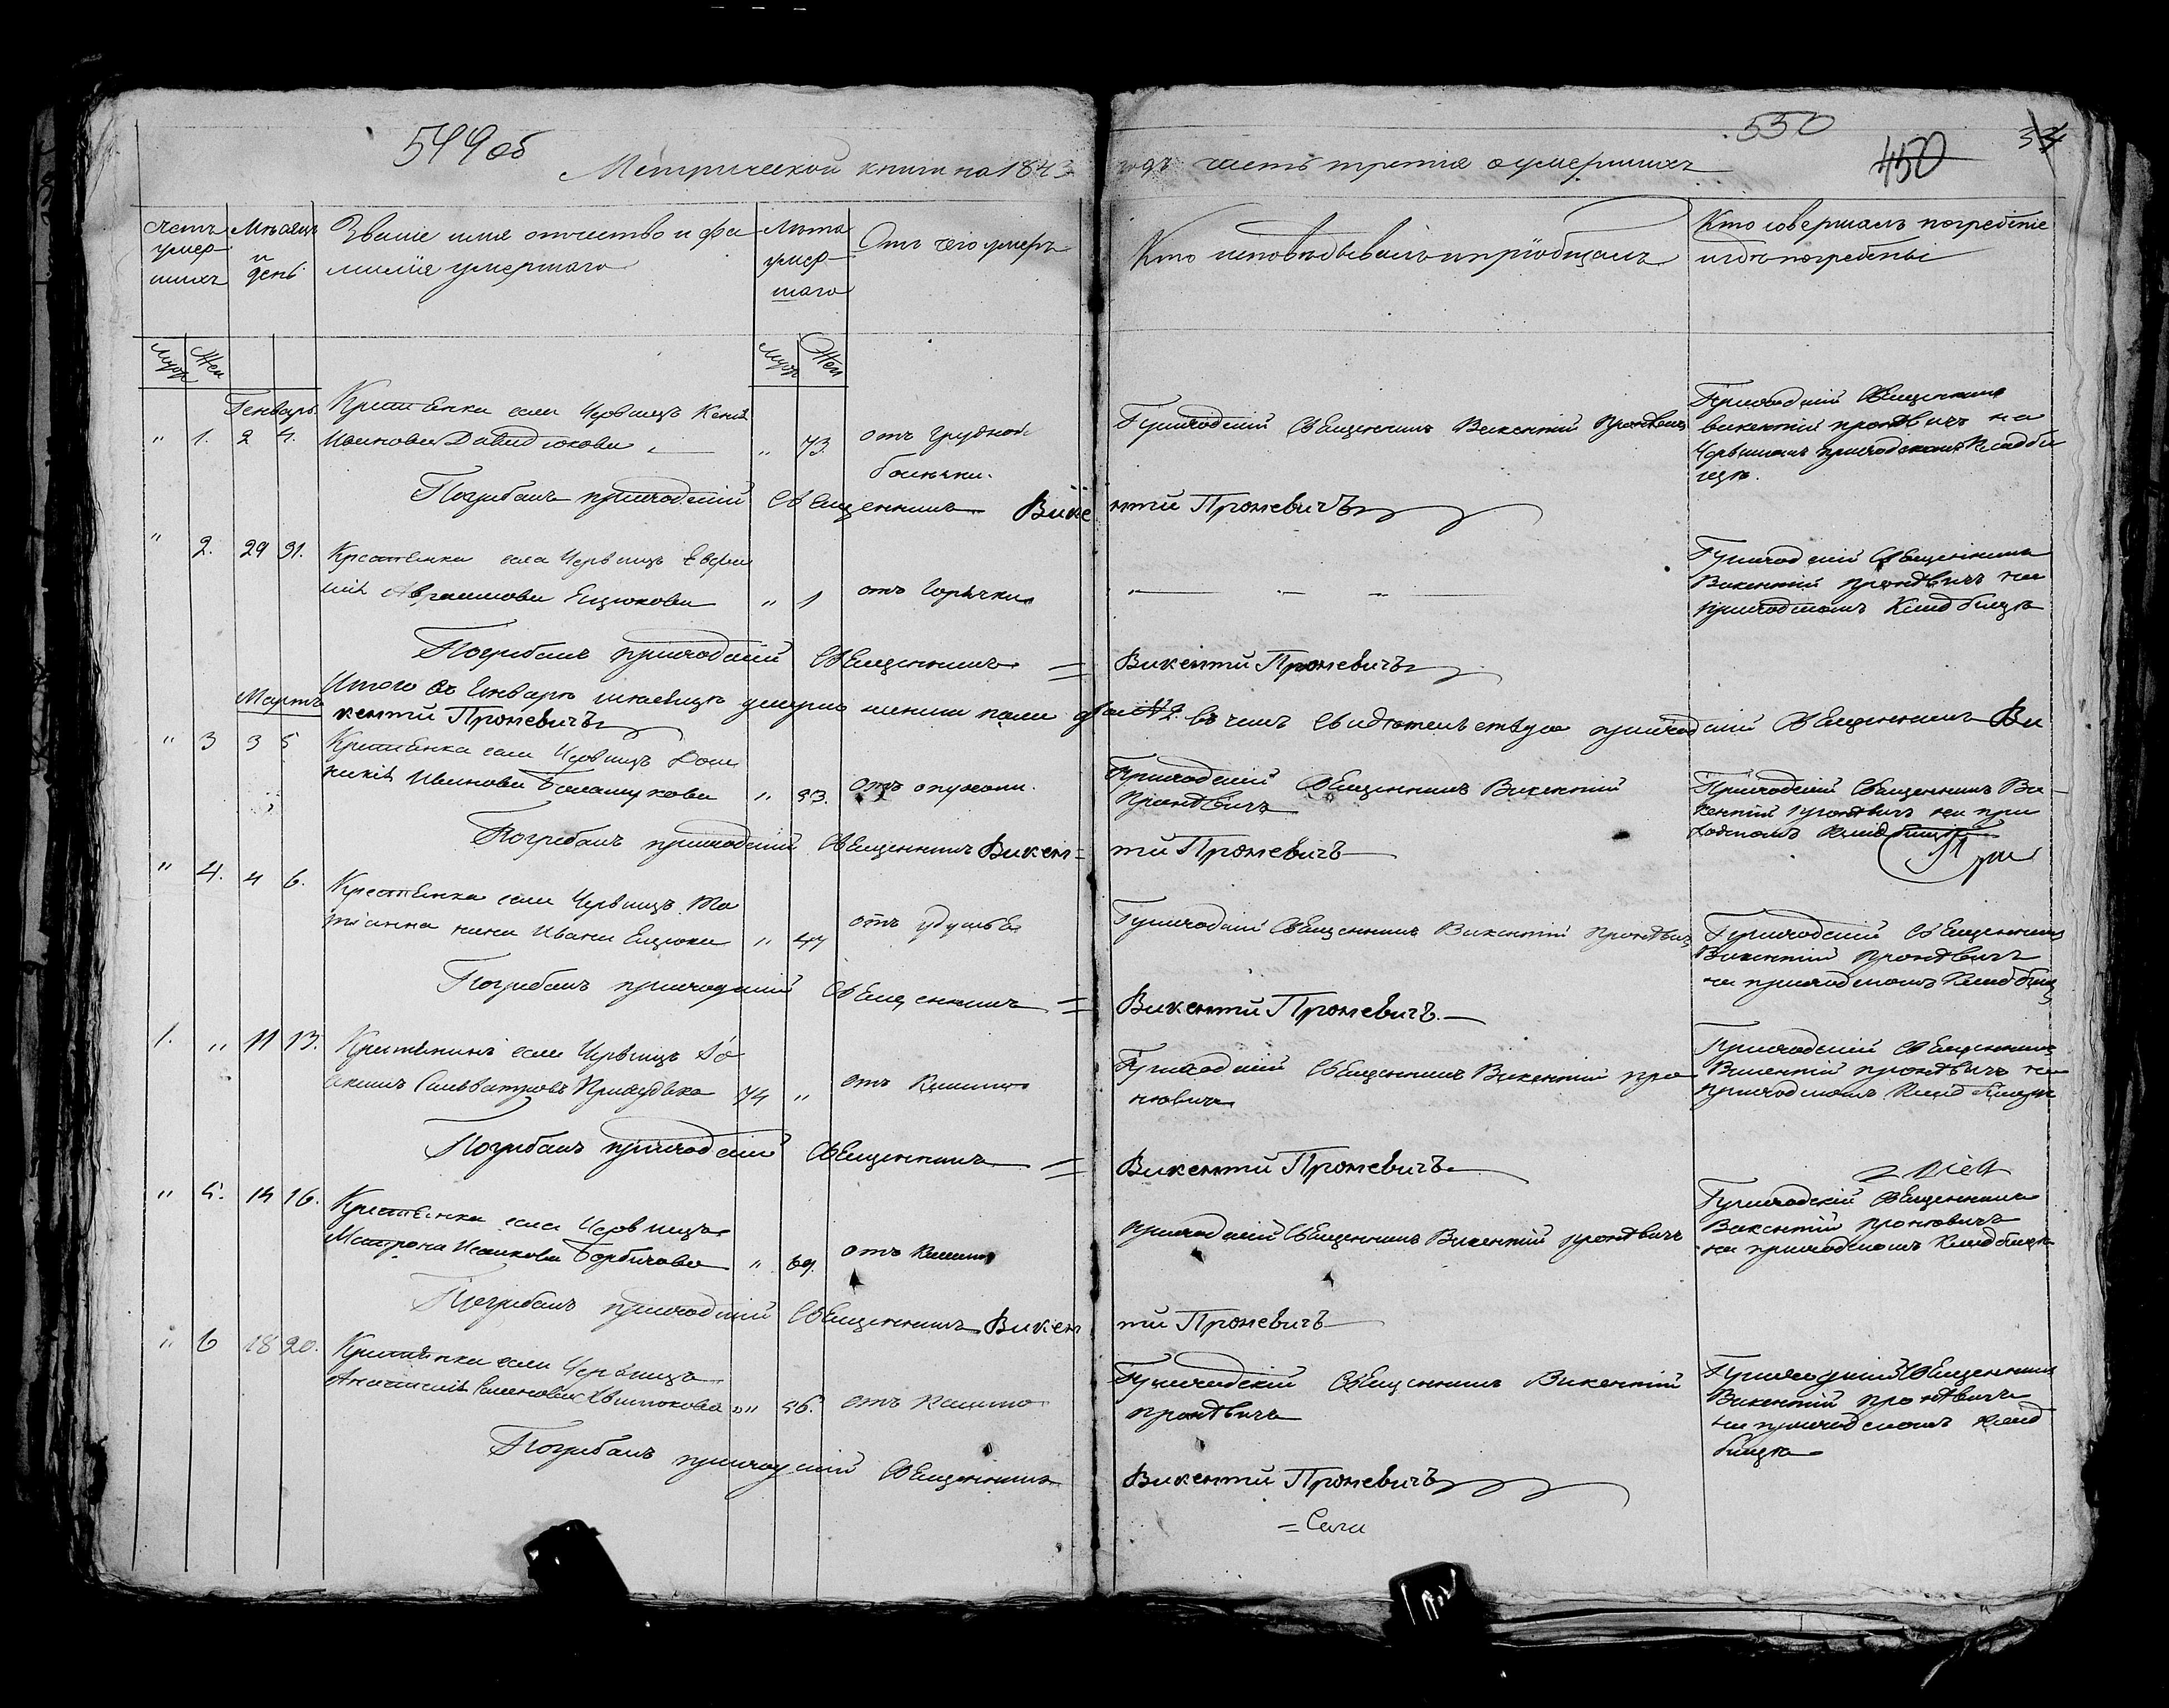 549 об
550
450
34
Метрической книги на 1843
годъ часть третія о умершихъ
Счетъ умершихъ
Мѣсяцъ и день
Званіе имя отчество и фамилія умершаго
Лѣта умершаго
Отъ чего умеръ
Кто исповѣдывалъ и пріобщалъ
Кто совершалъ погребеніе и гдѣ погребены
Муж
Жен
Муж
Жен
Генварь
Крестьянка села Червищъ
" 1. 2 4. Иванова Давидюкова " 73. отъ грудной
болѣчки.
Приходскій Священникъ Викентій Проневичъ
Приходскій Священникъ
Викентій Проневичъ на
приходскомъ кладби
щѣ.
Погребалъ приходскій Священникъ Вике
нтій Проневичъ
" 2. 29 31. Крестьянка села Червищъ Евфи
мія Аврамова Ецюкова " 1 отъ горячки
Приходскій Священникъ
Викентій Проневичъ на
приходскомъ кладбищѣ
Погребалъ приходскій Священникъ =
Викентій Проневичъ
Мартъ
Итого въ Генварѣ мѣсяцѣ умерло женска пола двѣ № 2. въ чемъ свидѣтельствую приходскій Священникъ Ви
кентій Проневичъ
" 3 3 5 Крестьянка села Червищъ Дом
никія Иванова " 53. отъ опухоли.
Приходскій Священникъ Викентій
Проневичъ
Приходскій Священникъ Ви
кентій Проневичъ на при
ходскомъ кладбищѣ
Погребалъ приходскій Священникъ Викен=
тій Проневичъ
" 4. 4 6. Крестьянка села Червищъ Та
тіанна жена Ивана Ецюка " 47 отъ удушья
Приходскій Священникъ Викентій Проневичъ
Приходскій Священникъ
Викентій Проневичъ
на приходскомъ кладбищ
Погребалъ приходскій Священникъ =
Викентій Проневичъ.
1. " 11 13. Крестьянинъ села Червищъ Іо
акимъ 74 " отъ кашлю
Приходскій Священникъ Викентій Про
невичъ
Приходскій Священникъ
Викентій Проневичъ на
приходскомъ кладбищѣ
Погребалъ приходскій Священникъ =
Викентій Проневичъ
" 5. 14 16. Крестьянка села Червищъ
Матрона Исакова " 69. отъ кашлю
Приходскій Священникъ Викентій Проневичъ
Приходскій Священникъ
Викентій Проневичъ
на приходскомъ кладбищѣ
Погребалъ приходскій Священникъ Викен
тій Проневичъ
" 6 18 20. Крестьянка села Червищъ
Анастасія Семенова " 56. отъ кашлю
Приходскій Священникъ Викентій
Проневичъ
Приходскій Священникъ
Викентій Проневичъ
на приходскомъ клад
бищѣ
Погребалъ приходскій Священникъ
Викентій Проневичъ